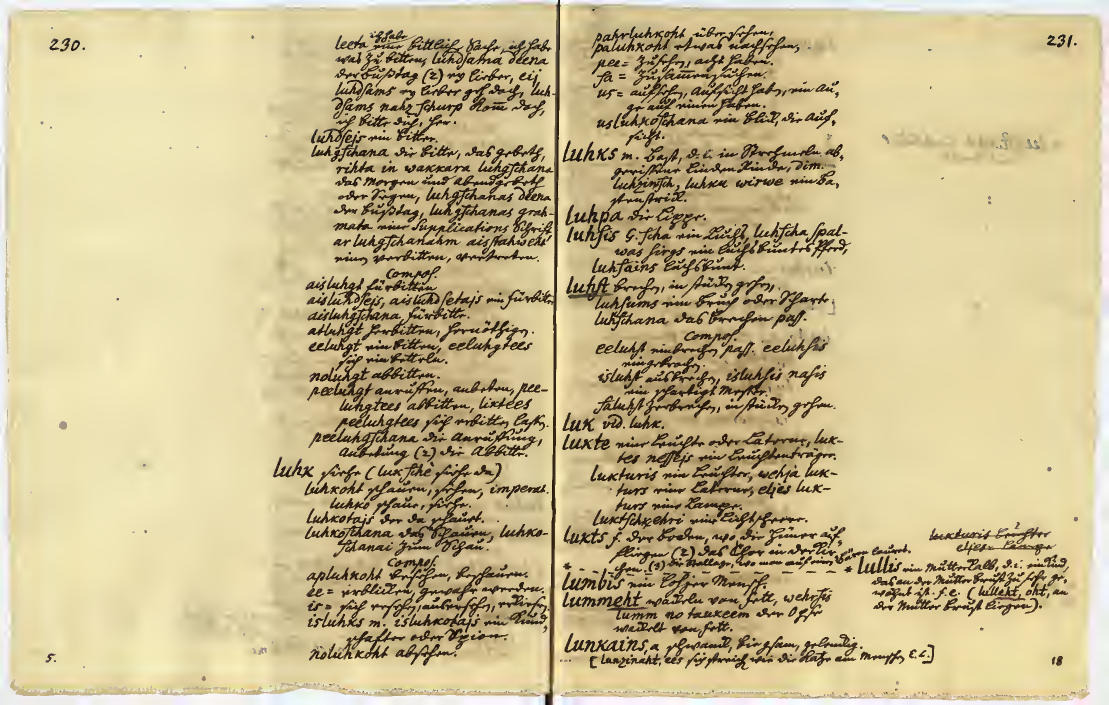 230.
ich habe
leeta eine bittliche Sache, ich habe
was zu bitten, luhdsama deena
der Bußtag (2) ey lieber, ei,
luhdsams ey lieber geh doch, luh-
dsams nahz schurp Kom doch,
ich bitte dich, her.
luhdsejs ein Bitter.
luhgschana die Bitte, das gebeth,
rihta in wakkara luhgschana
das Morgen und abendgebeth
oder Segen, luhgschanas deena
der Bußtag, luhgschanas grah-
mata eine Supplications Schrift,
ar luhgschanahm aisstahweht
einen verbitten, vertreten.
Compos.
aisluhgt fürbitten
aisluhdsejs, aisluhdsetajs ein fürbitter
aisluhgschana, fürbitte.
atluhgt herbitten,
eeluhgt einbitten, eeluhgtees
sich einbetteln.
noluhgt abbitten.
peeluhgt anruffen, anbeten, pee-
luhgtees abbitten, liktees
peeluhgtees sich erbitten laßen.
peeluhgschana die Anruffung,
Anbetung (2) die Abbitte.
luhk siehe (luk sche siehe da)
luhkoht schauen, sehen, imperat.
luhko schaue, siehe.
luhkotajs der da schauet.
luhkoschana das Schauen, luhko-
schanai zum Schau.
Compos.
apluhkoht besehen, beschauen.
ee = erblicken, gewahr werden.
is = sich ersehen,
isluhks m. isluhkotajs ein Kund-
schafter oder Spion.
noluhkoht absehen.
5.
231.
pahrluhkoht übersehen,
paluhkoht etwas nachsehen,
pee = zusehen, acht haben.
sa = zusamensuchen.
us = aufsehen, aufsicht haben, ein Au-
ge auf einen haben.
usluhkoschana ein Blick, die Auf-
sicht.
luhks m. Bast, d. i. in Strehmeln ab-
gerißene Lindenrinde, dim.
luhzinsch, luhku wirwe ein Ba-
stenstrick.
luhpa die Lippe.
luhsis G. scha ein Luchs, luhscha spal-
was sirgs ein luchsbuntes Pferd,
luhsains luchsbunt.
luhst brechen, in stücken gehen,
luhsums ein bruch oder Scharte.
luhschana das brechen pass.
Compos.
eeluhst einbrechen pass. eeluhsis
eingebrochen.
isluhst ausbrechen, isluhsis nasis
ein schartiges Meßer.
saluhst zerbrechen, in stücken gehen.
luk vid. luhk.
lukte eine Leuchte oder Laterne, luk-
tes nessejs ein Leuchtenträger.
lukturis ein Leuchter, wehja luk-
turs eine Laterne, eljes luk-
turs eine Lampe.
luktschkehri eine Lichtscheere.
lukts f. der Boden, wo die Hüner auf-
fliegen (2) das Chor in der Kir-
chen. (3) die Stellage, wo man auf einen Bären lauert.
lumbis ein Mensch.
lummeht wackeln von fett, wehrsis
lumm no taukeem der Ochse
wackelt von fett.
lunkains, a schwanck, biegsam, gelendig.
[lunzinaht, ees sich streich wie die Katze am Menschen E. L.]
lukturis Leuchter
eljes Lampe
* lullis ein Mutterkalb, d. i. ein Kind,
das an der Mutter Brust zu sehr ge-
wöhnt ist. f. e. (lulleht, oht, an
der Mutter Brust liegen).
18